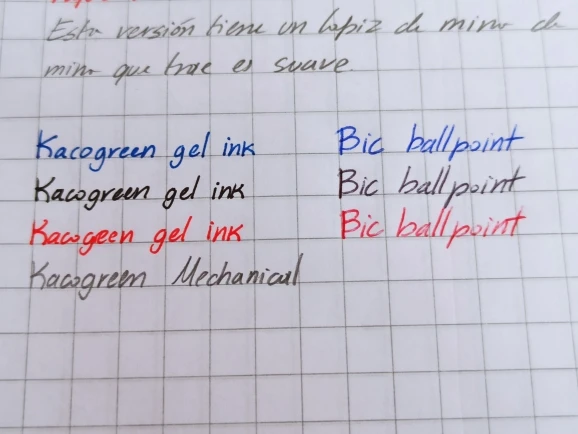 Esta versión tiene un lapiz de mina de
mina que trae es suave.
Kacogreen gel ink Bic ballpoint
Kacogreen gel ink Bic ballpoint
Kacogeen gel ink Bic ballpoint
Kacogreen Mechanical